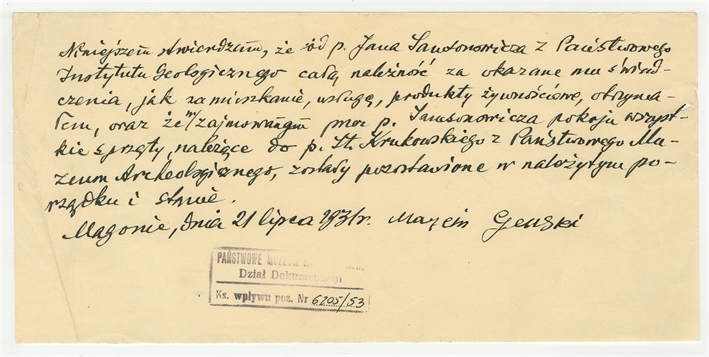 Niniejszem stwierdzam, że od p. Jana Samsonowicza z Państwowego
Instytutu Geologicznego całą należność za okazane mu świad-
czenia, jak za mieszkanie, usługę, produkty żywnościowe, otrzyma-
łem, oraz że w zajmowanym przez p. Samsonowicza pokoju wszyst-
kie sprzęty, należące do p. St. Krukowskiego z Państwowego Mu-
zeum Archeologicznego, zostały pozostawione w należytym po-
rządku i stanie.
Magonie, dnia 21 lipca 1931 r. Marcin
PAŃSTWOWE MUZEUM
Dział Dokumentacji
Ks. wpływu poz. Nr 6205/53